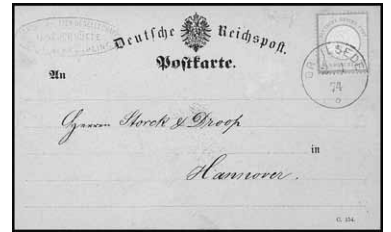 Deutsche Reichspost.
Postkarte.
An
GR. ILSEDE
74
Herren Storck & Droop
in
Hannover.
C. 154.